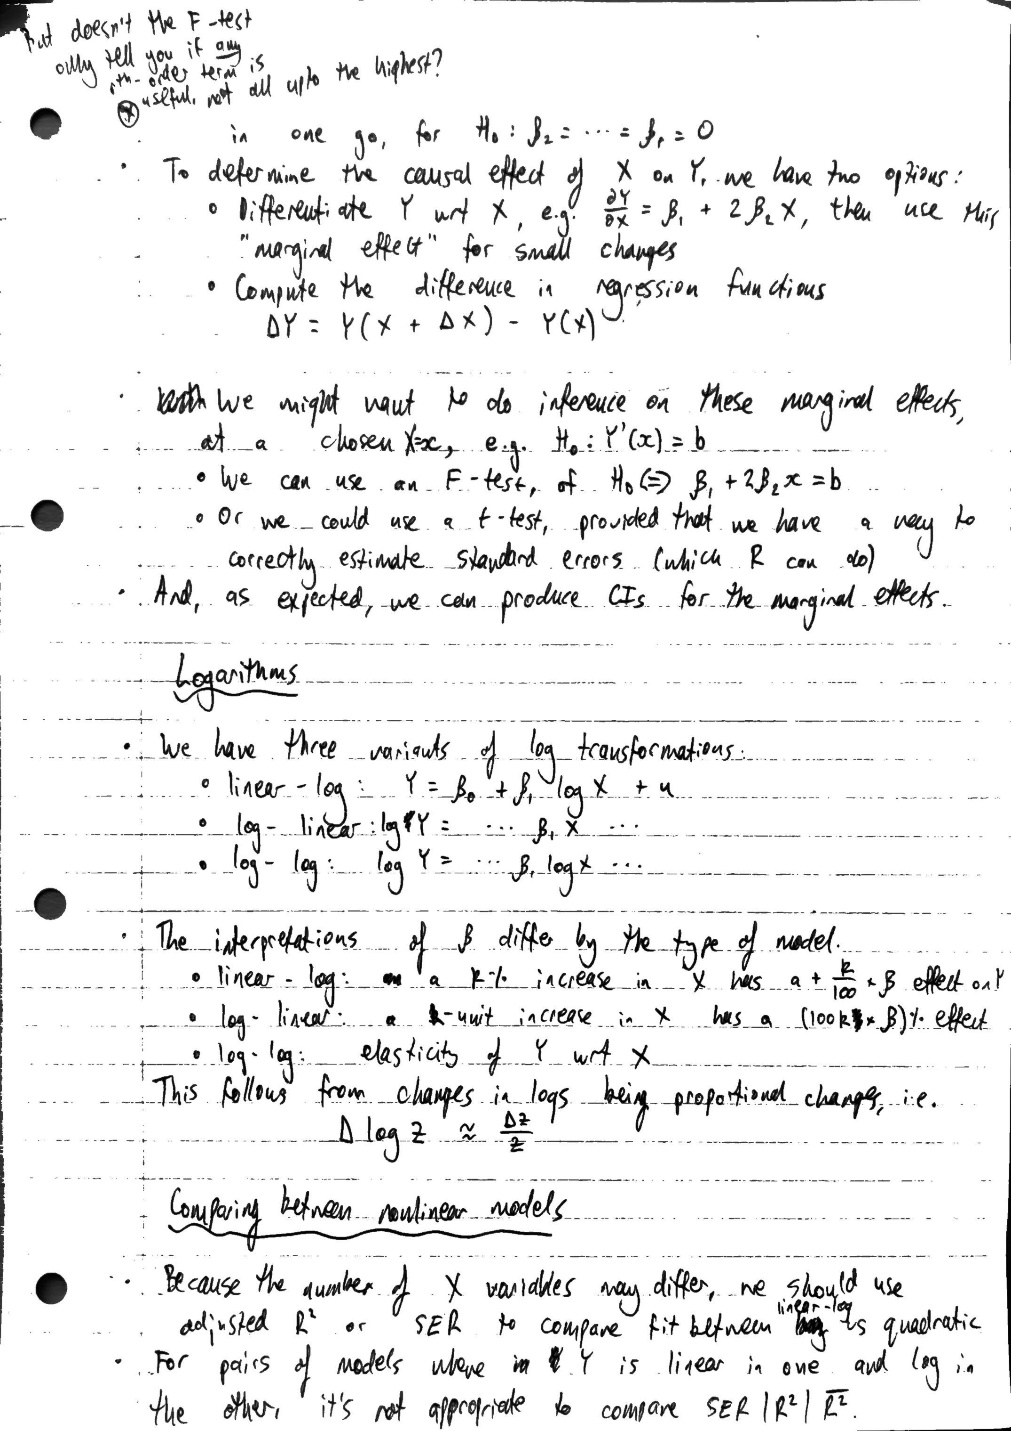 But doesn't the F-test
only tell you if any
rth-order term is
⊛ useful, not all upto the highest?
in one go, for H₀: β₂ = ... = βᵣ = 0
· To determine the causal effect of X on Y, we have two options:
∘ Differentiate Y wrt X, e.g. ∂Y/∂X = β₁ + 2β₂X, then use this
"marginal effect" for small changes
∘ Compute the difference in regression functions
ΔY = Y(X + ΔX) - Y(X)
· We might want to do inference on these marginal effects,
at a chosen X=x, e.g. H₀: Y'(x) = b
∘ We can use an F-test, of H₀ ⇔ β₁ + 2β₂x = b
∘ Or we could use a t-test, provided that we have a way to
correctly estimate standard errors (which R can do)
· And, as expected, we can produce CIs for the marginal effects.
Logarithms
· We have three variants of log transformations:
∘ linear-log: Y = β₀ + β₁ log X + u
∘ log-linear: log Y = ... β₁ X ...
∘ log-log: log Y = ... β₁ log X ...
· The interpretations of β differ by the type of model.
∘ linear-log: a k% increase in X has a + k/100 × β effect on Y
∘ log-linear: a k-unit increase in X has a (100k × β)% effect
∘ log-log: elasticity of Y wrt X
This follows from changes in logs being proportional changes, i.e.
Δ log z ≈ Δz/z
Comparing between nonlinear models
· Because the number of X variables may differ, we should use
adjusted R² or SER to compare fit between linear-log vs quadratic
· For pairs of models where Y is linear in one and log in
the other, it's not appropriate to compare SER | R² | R̅².